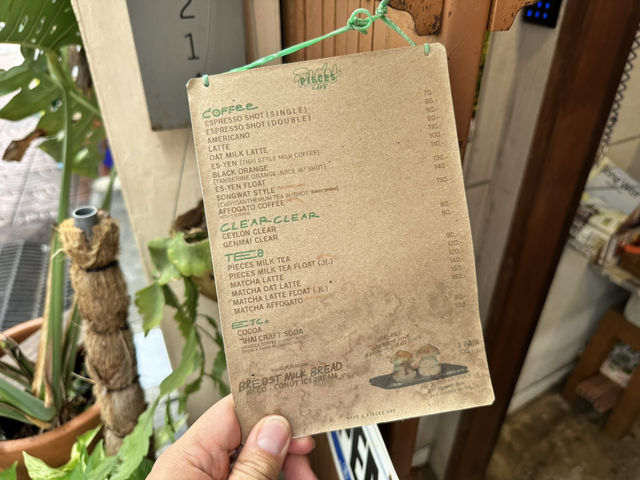 2
1
PIECES
CAFE
COFFEE
ESPRESSO SHOT (SINGLE) 70.-
ESPRESSO SHOT (DOUBLE) 90.-
AMERICANO 80.-
LATTE 90.-
OAT MILK LATTE 110.-
ES-YEN [THAI STYLE MILK COFFEE] 100.-
BLACK ORANGE 110.-
[TANGERINE ORANGE JUICE W/ SHOT]
ES-YEN FLOAT 130.-
SONGWAT STYLE 140.-
[CHRYSANTHEMUM TEA W/SHOT]
AFFOGATO COFFEE 150.-
CLEAR CLEAR
CEYLON CLEAR 80.-
GENMAI CLEAR 90.-
TEA
PIECES MILK TEA 90.-
PIECES MILK TEA FLOAT 120.-
MATCHA LATTE 120.-
MATCHA OAT LATTE 140.-
MATCHA LATTE FLOAT 150.-
MATCHA AFFOGATO 160.-
ETC.
COCOA 90.-
THAI CRAFT SODA 100.-
BREAST MILK BREAD
W/CO-CONUT ICECREAM
1 PAIR
HAVE A PIECES DAY